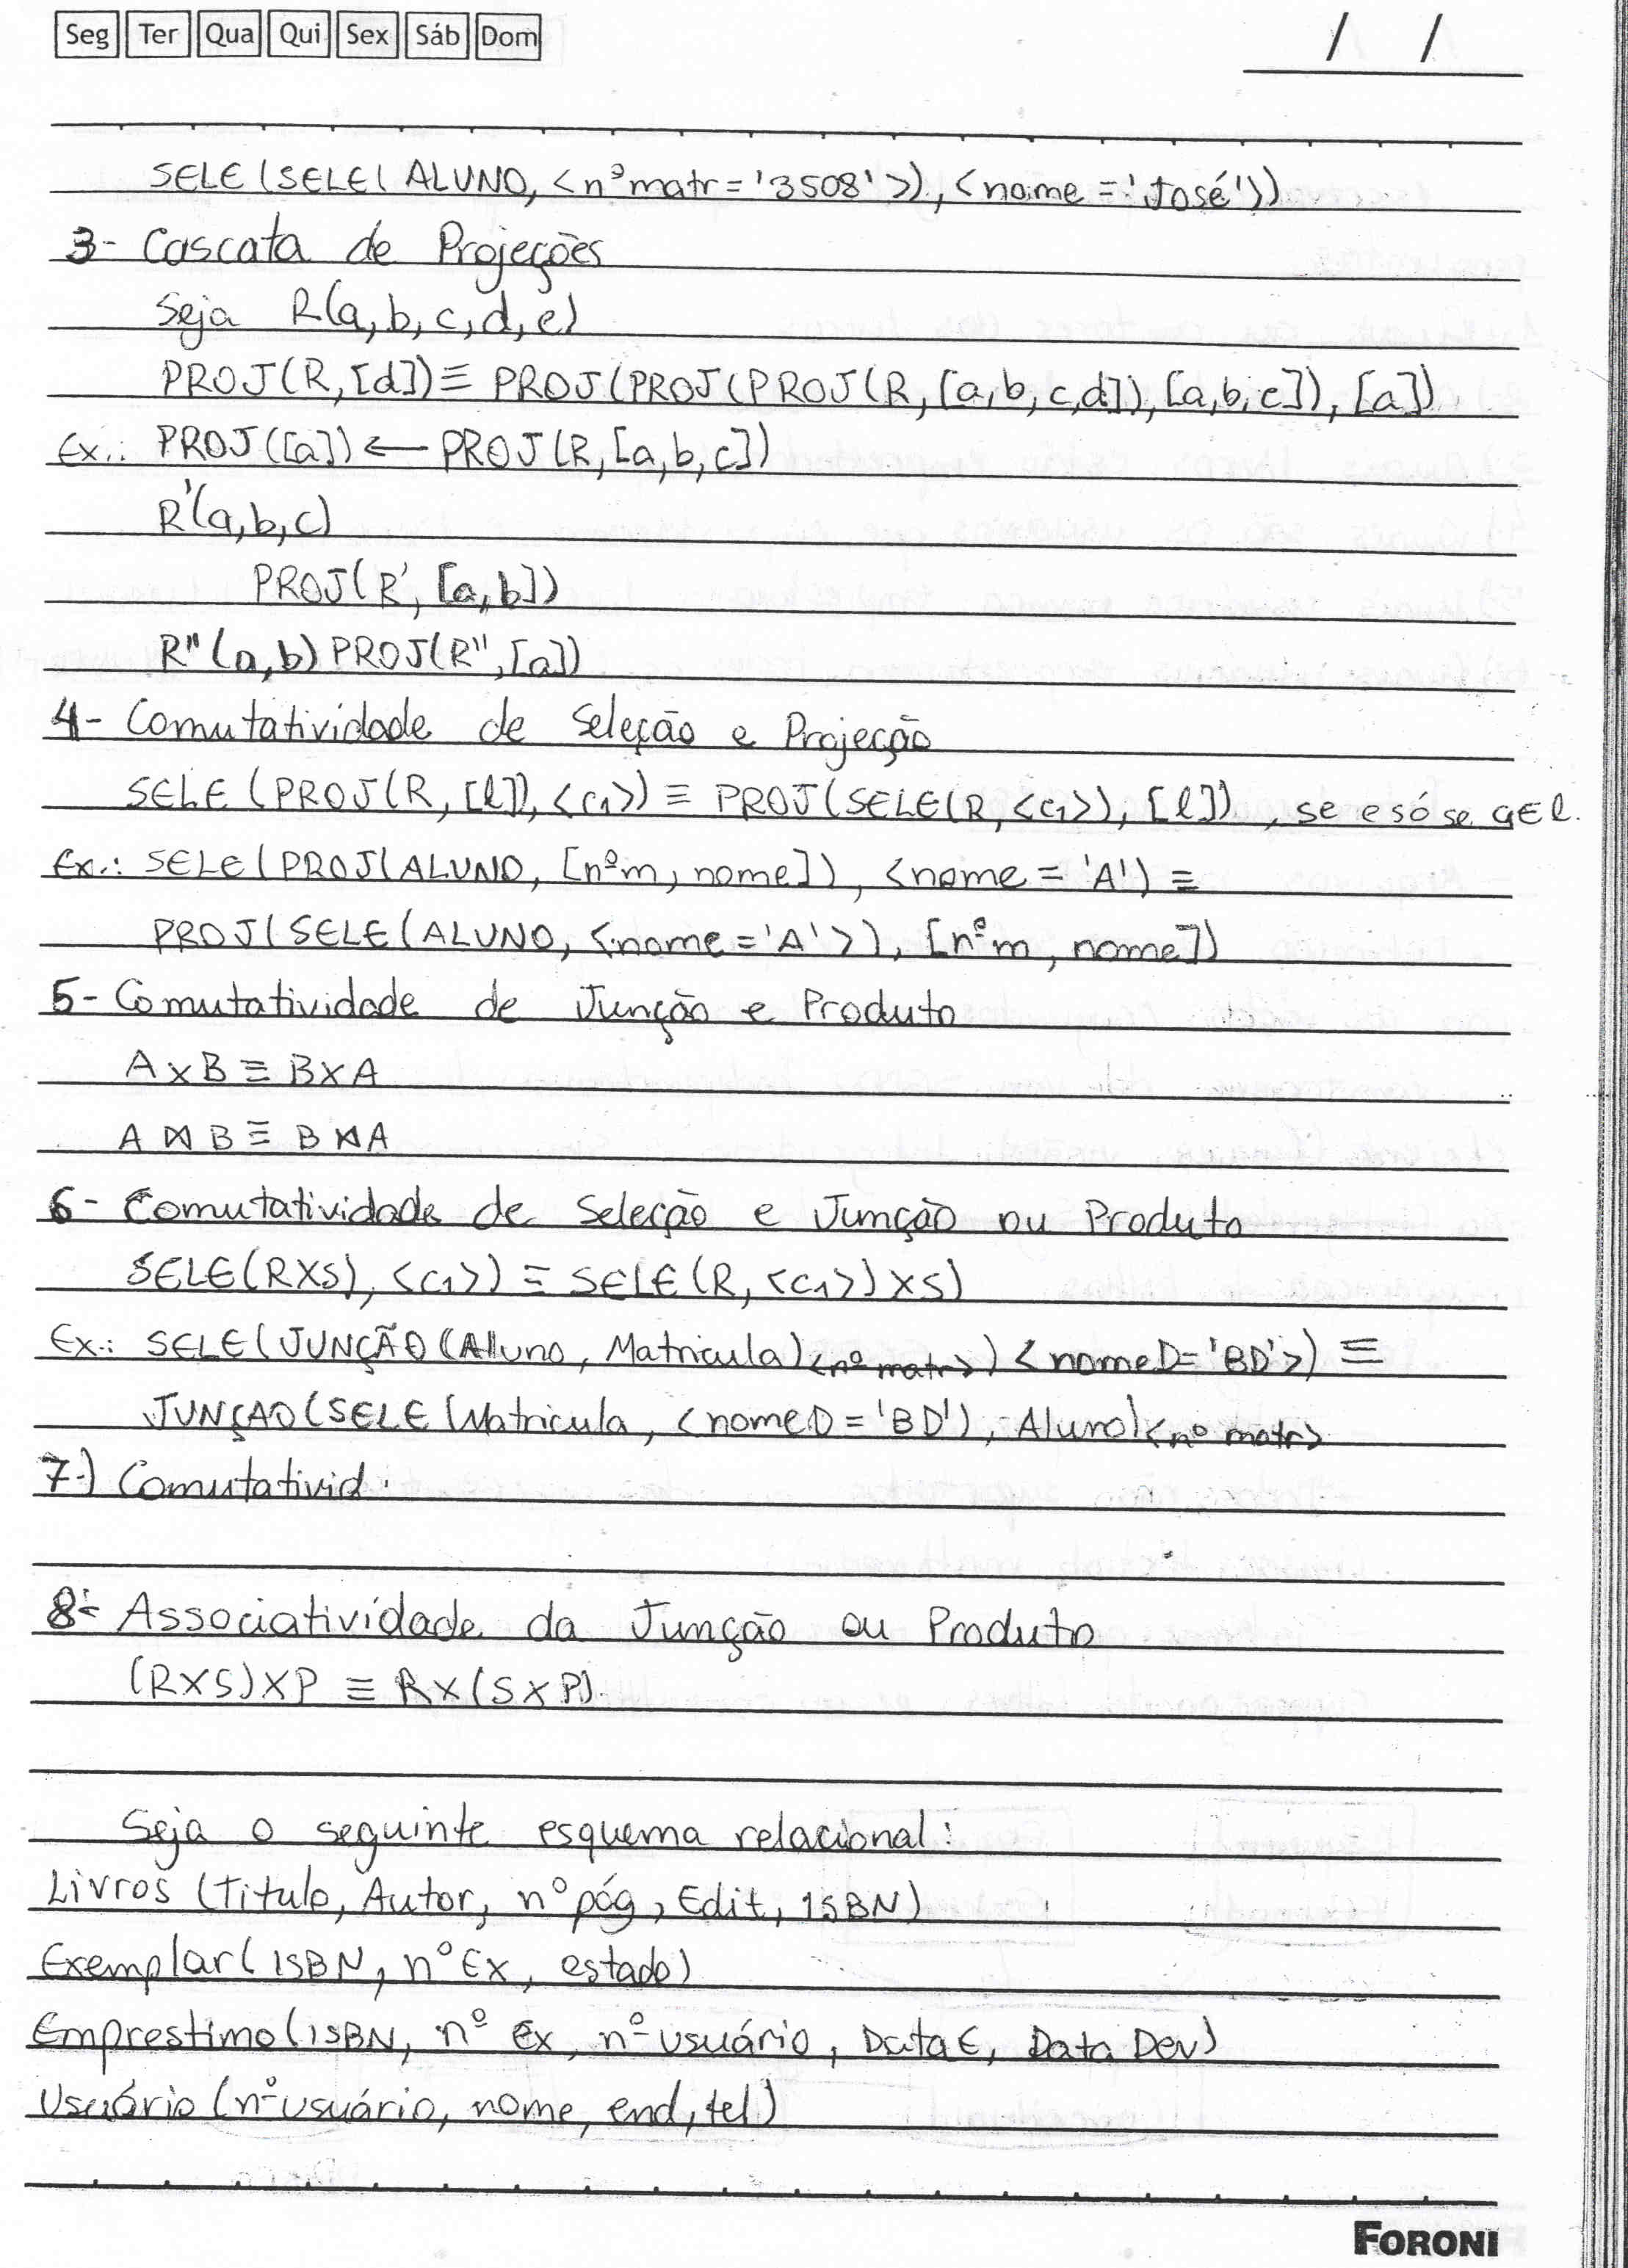 Seg Ter Qua Qui Sex Sáb Dom
/ /
SELE(SELE(ALUNO, <nº matr = '3508'>), <nome = 'José'>)
3- Cascata de Projeções
Seja R(a, b, c, d, e)
PROJ(R, [d]) ≡ PROJ(PROJ(PROJ(R, [a, b, c, d]), [a, b, c]), [a])
Ex.: PROJ([a]) ← PROJ(R, [a, b, c])
R'(a, b, c)
PROJ(R', [a, b])
R"(a, b) PROJ(R", [a])
4- Comutatividade de Seleção e Projeção
SELE (PROJ(R, [l]), <c1>) ≡ PROJ(SELE(R, <c1>), [l]), se e só se c1 ∈ l.
Ex.: SELE(PROJ(ALUNO, [nºm, nome]), <nome = 'A') ≡
PROJ(SELE(ALUNO, <nome = 'A'>), [nºm, nome])
5- Comutatividade de Junção e Produto
A x B ≡ B x A
A ⋈ B ≡ B ⋈ A
6- Comutatividade de Seleção e Junção ou Produto
SELE(RXS), <c1>) ≡ SELE(R, <c1>) X S)
Ex.: SELE(JUNÇÃO(Aluno, Matricula)<nº matr>) <nomeD = 'BD'>) ≡
JUNÇAO(SELE(Matricula, <nomeD = 'BD'), Aluno)<nº matr>
7-) Comutativid.
8- Associatividade da Junção ou Produto
(RXS)XP ≡ RX(SXP).
Seja o seguinte esquema relacional:
Livros (Titulo, Autor, nº pág, Edit, ISBN)
Exemplar(ISBN, nº Ex, estado)
Emprestimo(ISBN, nº Ex, nº usuário, Data E, Data Dev)
Usuário (nº usuário, nome, end, tel)
FORONI